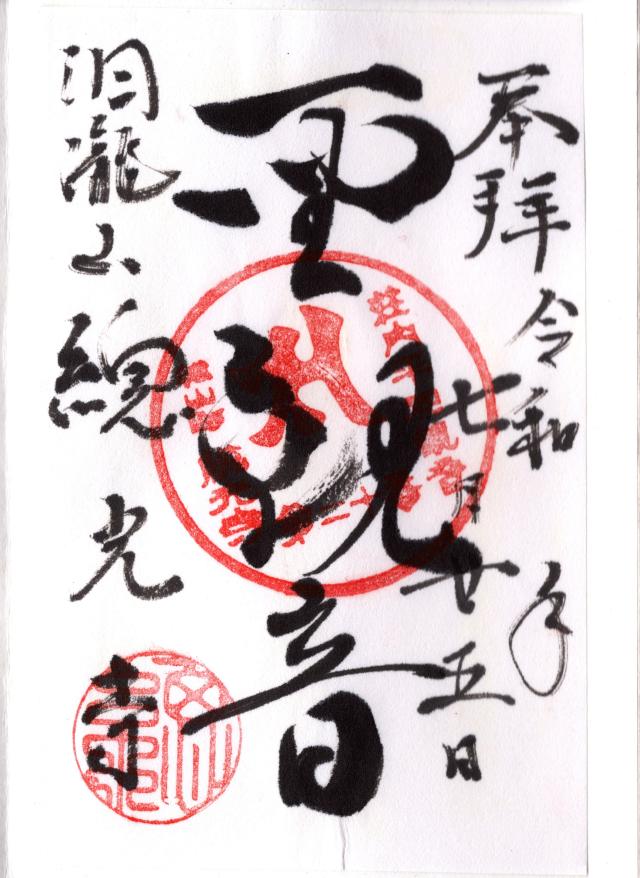 奉拝 令和 年
七月廿五日
聖観音
洞瀧山 總光寺